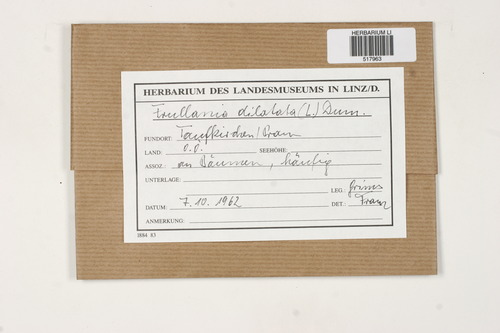 HERBARIUM LI
517963
HERBARIUM DES LANDESMUSEUMS IN LINZ/D.
Frullania dilatata (L.) Dum.
FUNDORT: Taufkirchen/Pram
LAND: O.Ö. SEEHÖHE:
ASSOZ.: an Bäumen, häufig
UNTERLAGE:
LEG.: Grims
DATUM: 7.10.1962 DET.: Franz
ANMERKUNG:
JH84 83